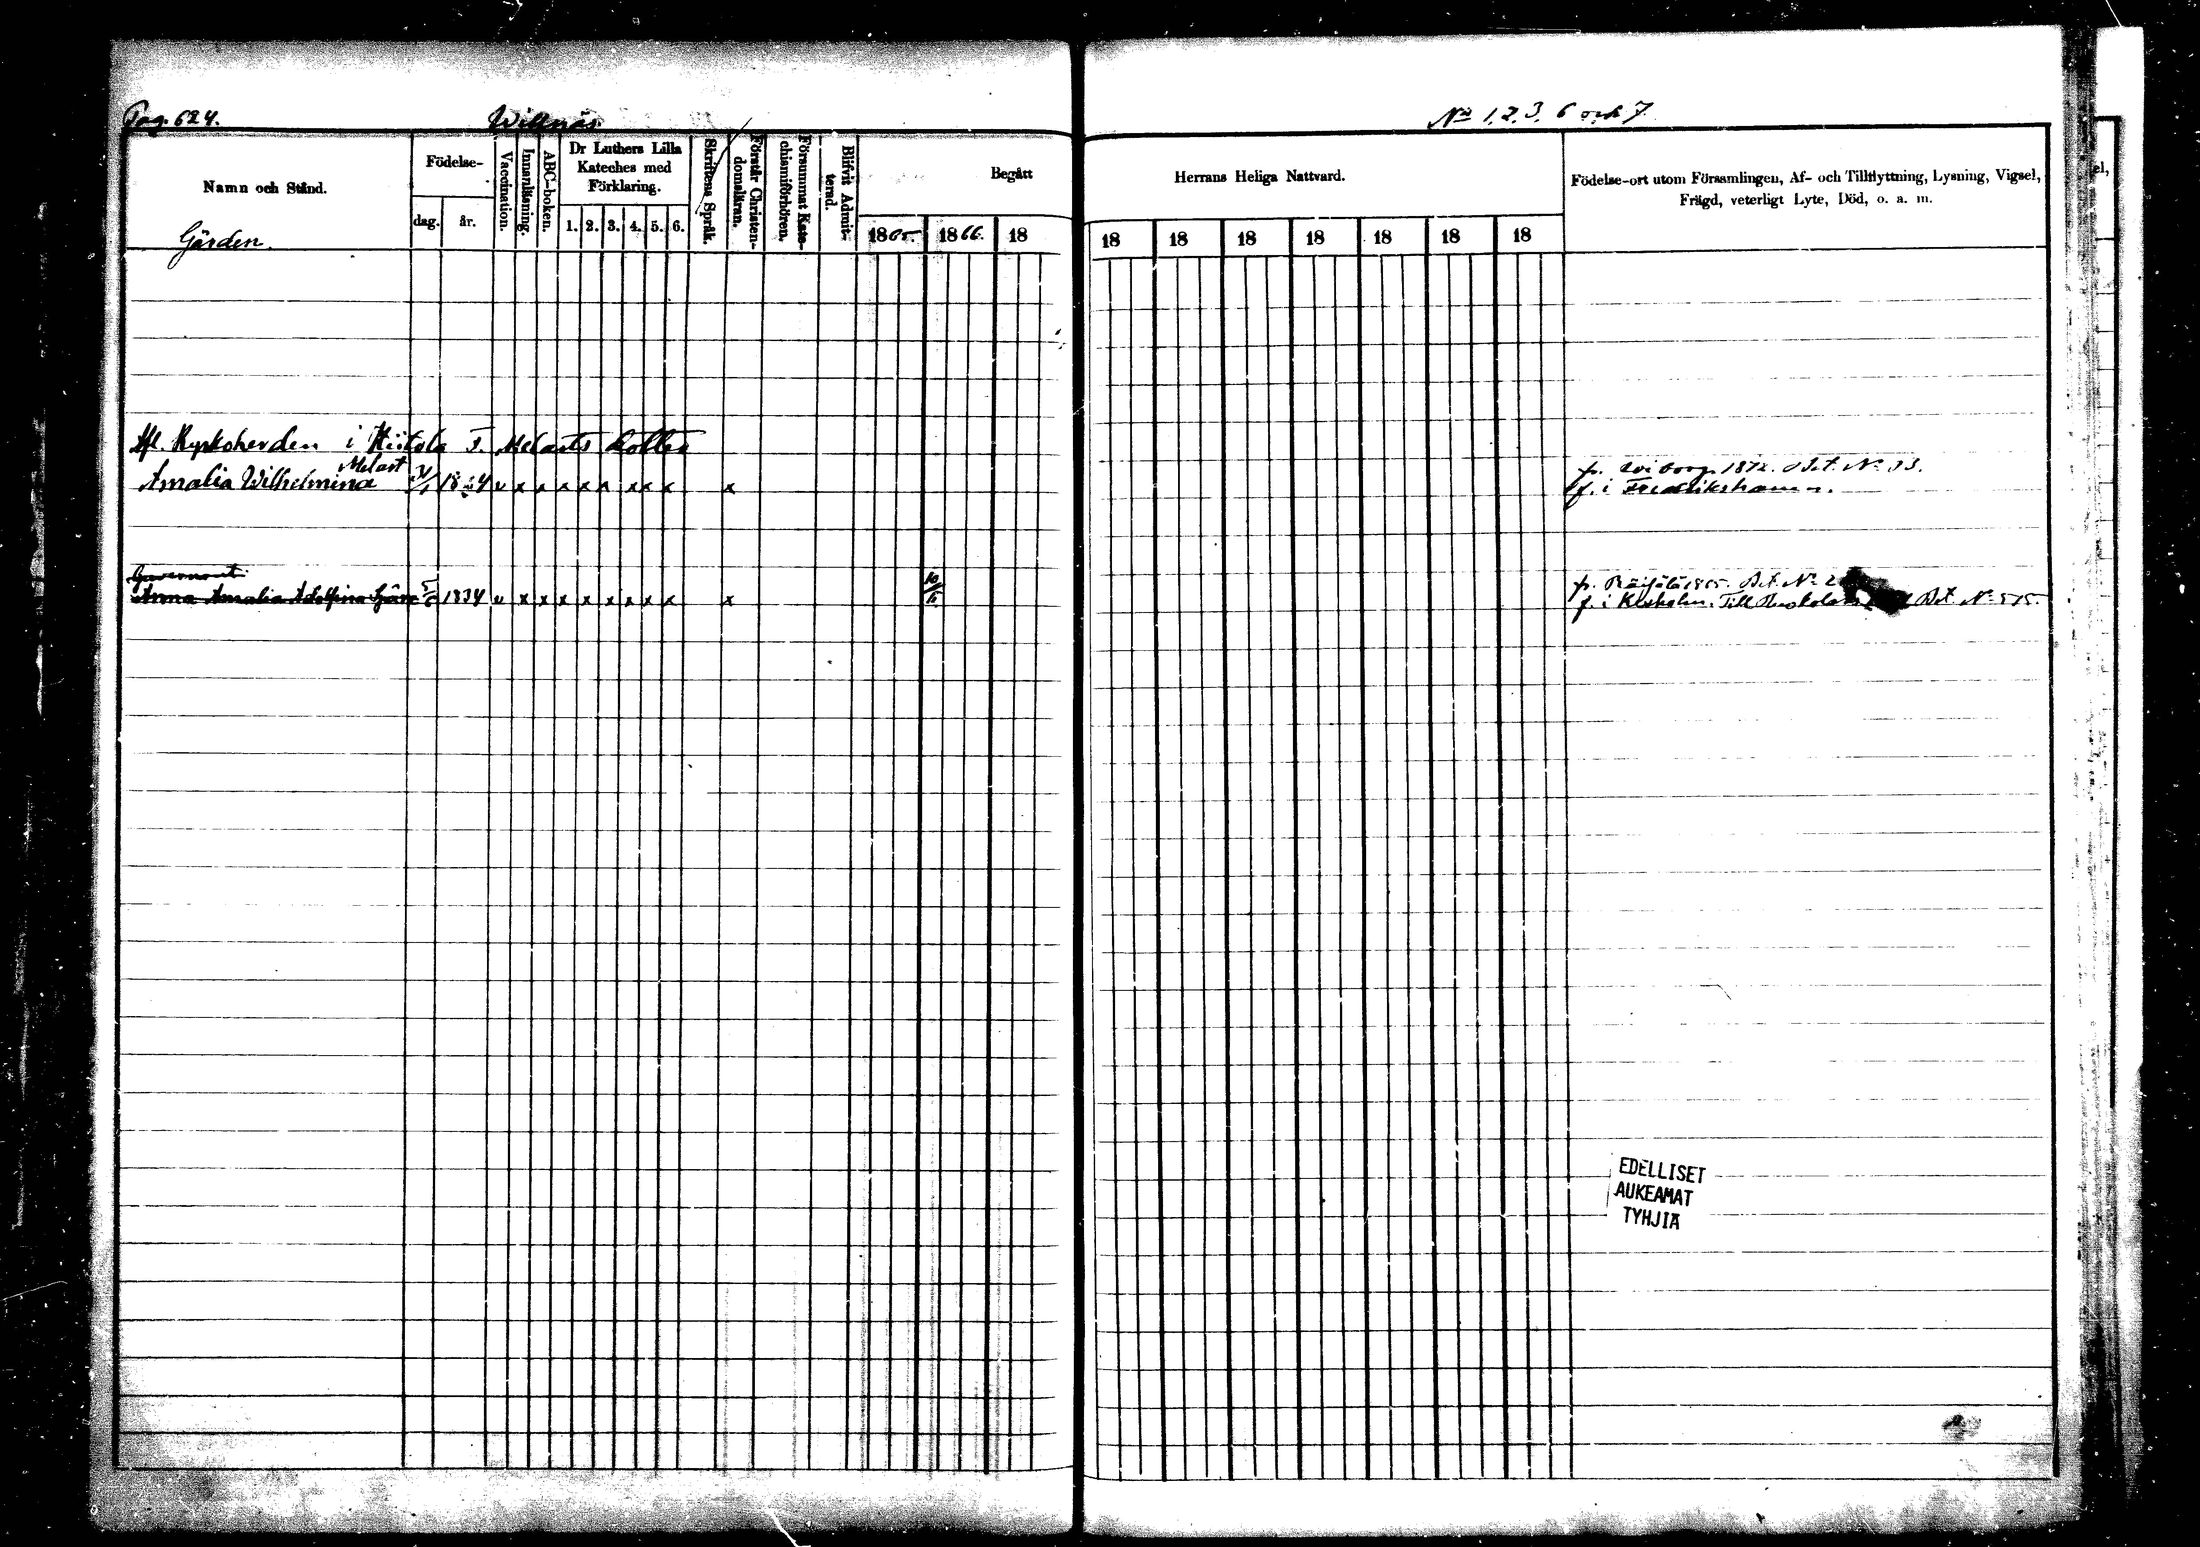 Pag. 624.
Willnäs.
Namn och Stånd.
Gården.
Födelse-
dag.
år.
Vaccination.
Innanläsning.
ABC-boken.
Dr Luthers Lilla
Kateches med
Förklaring.
1. 2. 3. 4. 5. 6.
Skriftens Språk.
Förstår Christen-
domsläran.
Försummat Kate-
chismiförhören.
Blifvit Admit-
terad.
Begått
1865. 1866. 18
Afl. Kyrkoherden i Hiitola F. Melarts dotter
Melart
Amalia Wilhelmina 18 4 v x x x x x x x x x
Guvernant
Anna Amalia Adolfina 5/6 1834 v x x x x x x x x x 10/6
No 1, 2, 3, 6 och 7
Herrans Heliga Nattvard.
18 18 18 18 18 18 18
Födelse-ort utom Församlingen, Af- och Tillflyttning, Lysning, Vigsel,
Frägd, veterligt Lyte, Död, o. a. m.
fr. Wiborg 1872. Bet. No 93.
f. i Fredrikshamn.
fr. Räisälä 1865. Bet. No 2
f. i Kexholm. Till Bet No 515.
EDELLISET
AUKEAMAT
TYHJIÄ